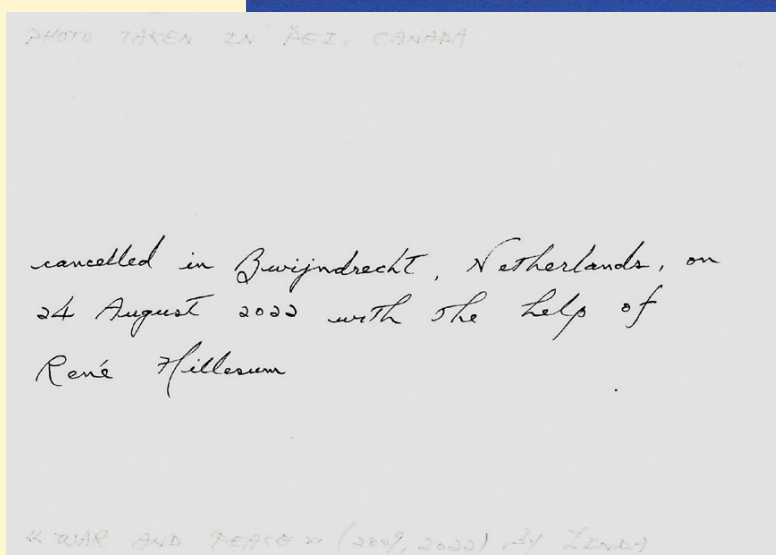 PHOTO TAKEN IN PEI, CANADA
cancelled in Zwijndrecht, Netherlands, on
24 August 2022 with the help of
René Hillesum
« WAR AND PEACE » (2009, 2022) BY LINDA